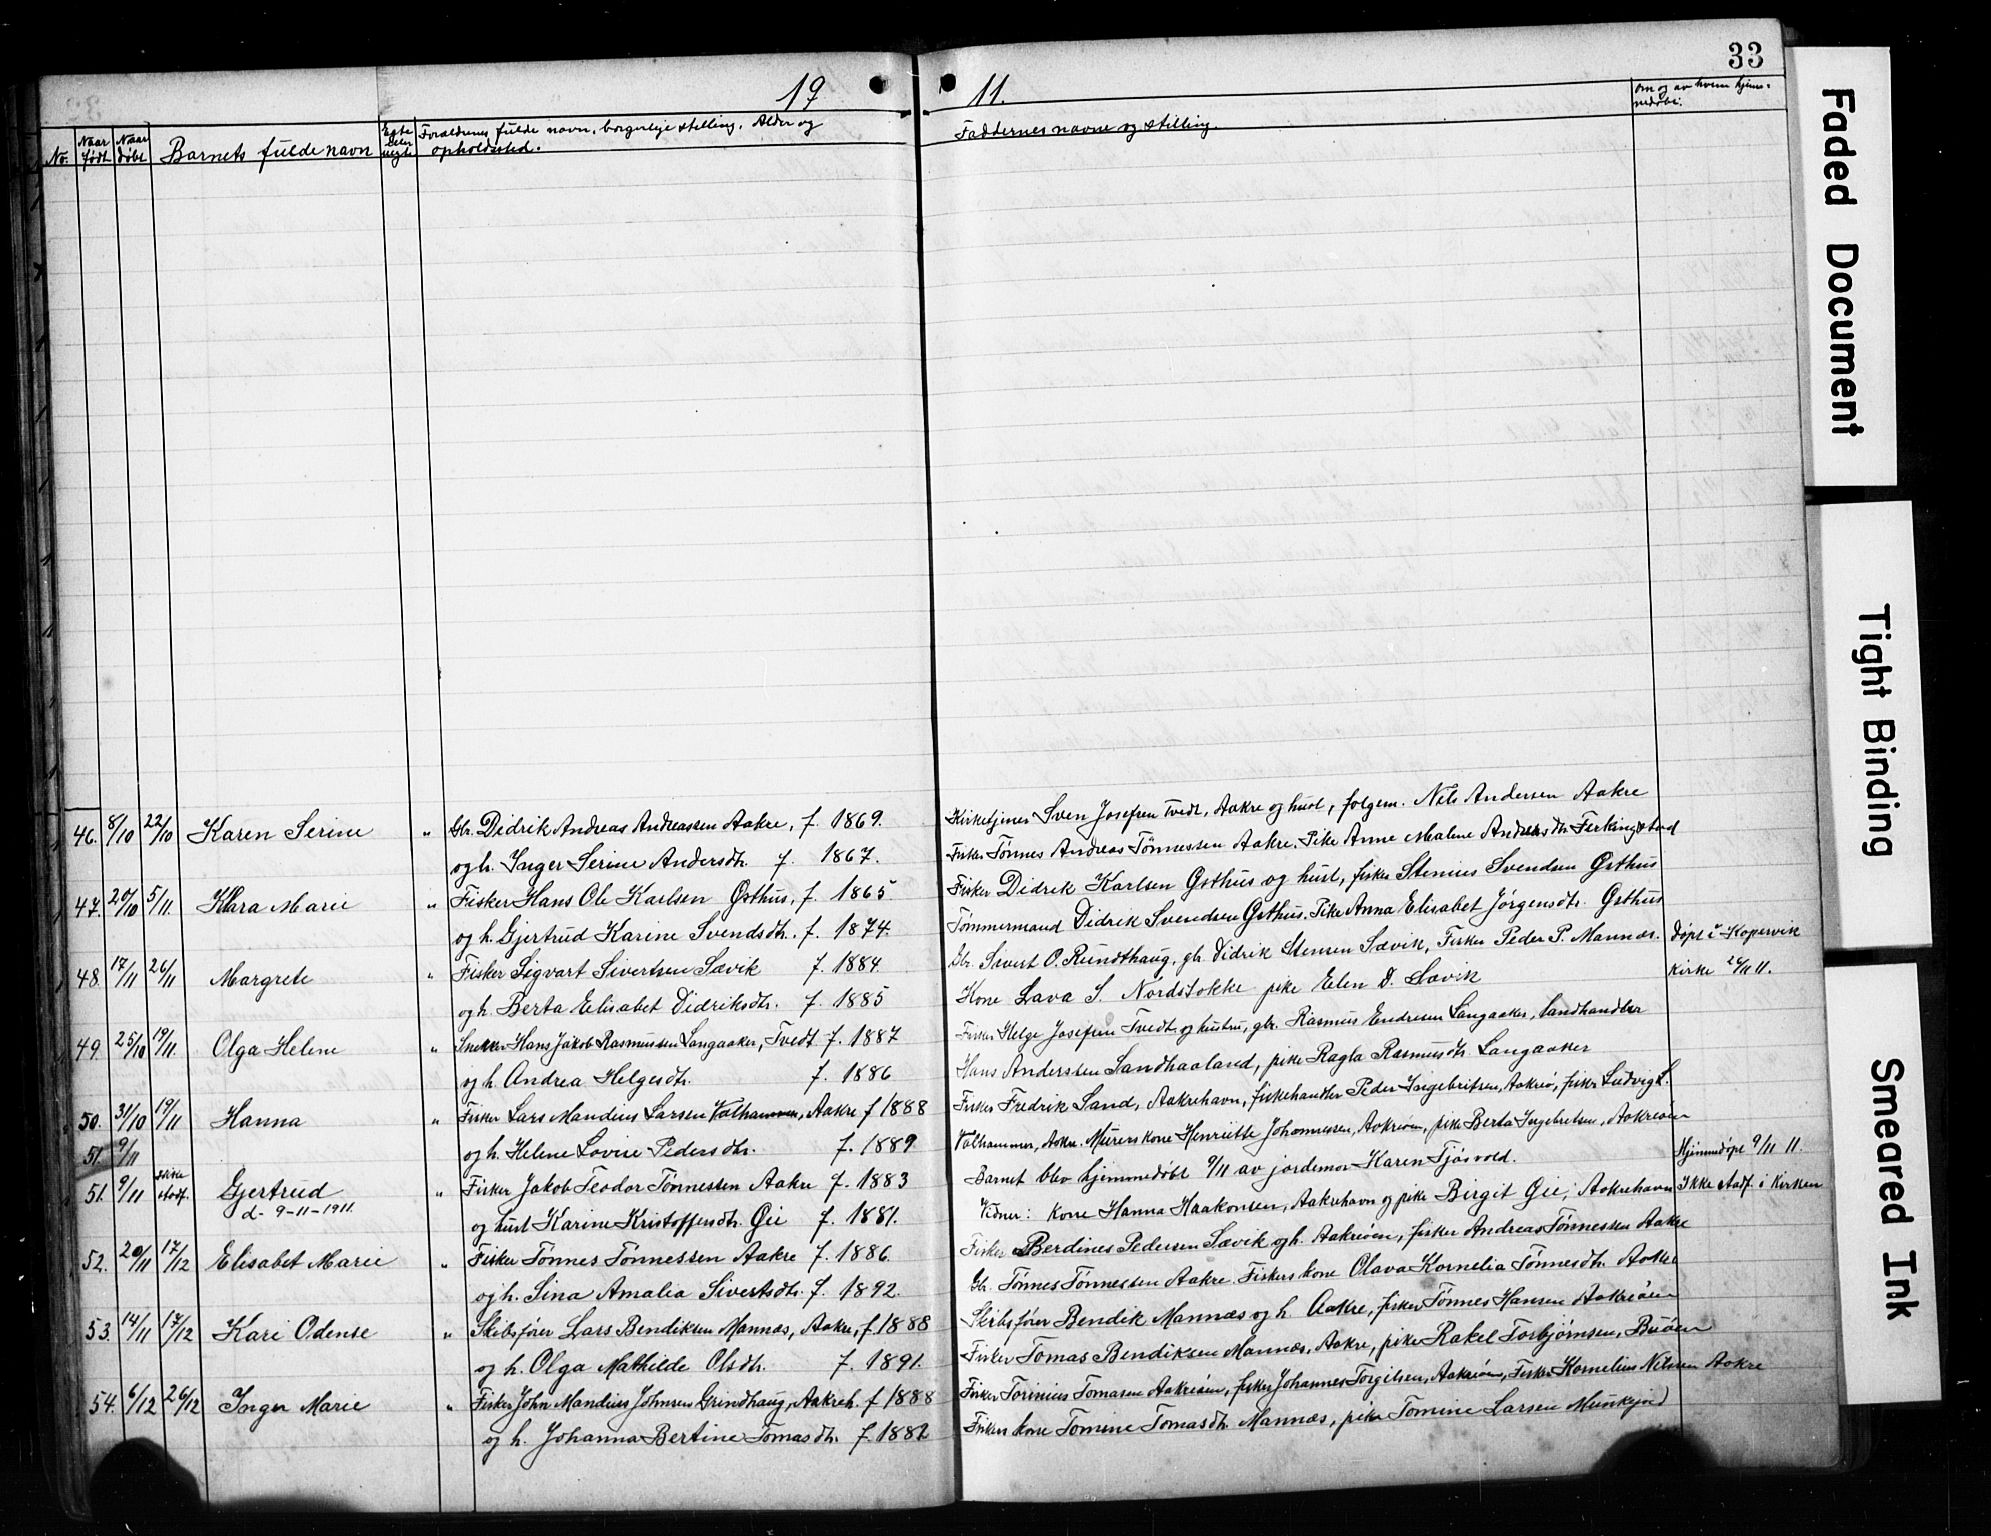 33
19 11.
No.
Naar født
Naar døbt
Barnets fulde navn
Egte eller uegte
Forældrenes fulde navn, borgerlige stilling, Alder og
opholdssted.
Faddernes navne og stilling.
Om og av hvem hjemmedøbt.
46. 8/10 22/10 Karen Serine " Gbr. Didrik Andreas Andreassen Aakre, f. 1869. Kirketjener Sven Josefsen Tvedt, Aakre og hust, Nils Andersen Aakre
og h. Inger Serine Andersdtr. f. 1867. Fisker Tønnes Andreas Tønnessen Aakre. Pike Anne Malene Andersdtr Ferkingstad
47. 20/10 5/11. Klara Marie " Fisker Hans Ole Karlsen Østhus, f. 1865 Fisker Didrik Karlsen Østhus og hust, fisker Stenius Svendsen Østhus
og h. Gjertrud Karene Svendsdtr. f. 1874. Tømmermand Didrik Svendsen Østhus. Pike Anna Elisabet Jørgensdtr. Østhus
48. 17/11 26/11 Margrete " Fisker Sigvart Sivertsen Sævik f. 1884. Gbr. Sivert O. Rundthaug, gbr. Didrik Stensen Sævik, Fisker Peder P. Mannæs. Døpt i Kopervik
og h. Berta Elisabet Didriksdtr. f. 1885 Kone Lava S. Nordstokke pike Elen D. Sævik kirke 26/11 11.
49. 25/10 19/11. Olga Helene " Snekker Hans Jakob Rasmussen Langaaker, Tvedt f. 1887 Fisker Helge Josefsen Tvedt og hustru, gbr. Rasmus Endresen Langaaker, landhandler
og h. Andrea Helgesdtr. f. 1886 Hans Anderssen Sandhaaland, pike Ragla Rasmusdtr. Langaaker
50. 31/10 19/11 Hanna " Fisker Lars Mandius Larsen Valhammer, Aakre f 1888 Fisker Fredrik Sand, Aakrehavn, fiskehandler Peder Ingebritsen, Aakreø, fisker Ludvig L.
51. 9/11 og h. Helene Lovise Pedersdtr. f. 1889 Valhammer, Aakre. Murers kone Henriette Johannessen, Aakreøen, pike Berta Ingebretsen, Aakreøen
51. 9/11 ikke stadf. Gjertrud " Fisker Jakob Teodor Tønnessen Aakre f. 1883 Barnet blev hjemmedøbt 9/11 av jordemor Karen Tjøsvold. Hjemmedøpt 9/11 11.
d. 9-11-1911. og hust Karine Kristoffersdtr. Gie f. 1881. Vidner: kone Hanna Haakonsen, Aakrehavn og pike Birgit Gie, Aakrehavn Ikke stadf. i Kirken
52. 20/11 17/12 Elisabet Marie " Fisker Tønnes Tønnessen Aakre f. 1886. Fisker Berdines Pedersen Sævik og h. Aakreøen, fisker Andreas Tønnessen Aakre
og h. Sina Amalia Sivertsdtr. f. 1892. Gbr. Tønnes Tønnessen Aakre. Fiskers kone Olava Kornelia Tønnesdtr. Aakre
53. 14/11 17/12 Kari Odense " Skibsfører Lars Bendiksen Mannæs, Aakre, f 1888 Skibsfører Bendik Mannæs og h. Aakre, fisker Tønnes Hansen Aakreøen
og h. Olga Mathilde Olsdtr. f. 1891. Fisker Tomas Bendiksen Mannæs, Aakre, pike Rakel Torbjørnsen, Buøen
54. 6/12 26/12 Inger Marie " Fisker John Mandius Johnsen Grindhaug, Aakreh. f 1888 Fisker Torinius Tomasen Aakreøen, fisker Johannes Torgilsen, Aakreøen, Fisker Kornelius Nilssen Aakre
og h. Johanna Bertine Tomasdtr. f. 1882 Fiskers kone Tomine Tomasdtr. Mannæs, pike Tomine Larsen Munkejord
Faded Document
Tight Binding
Smeared Ink